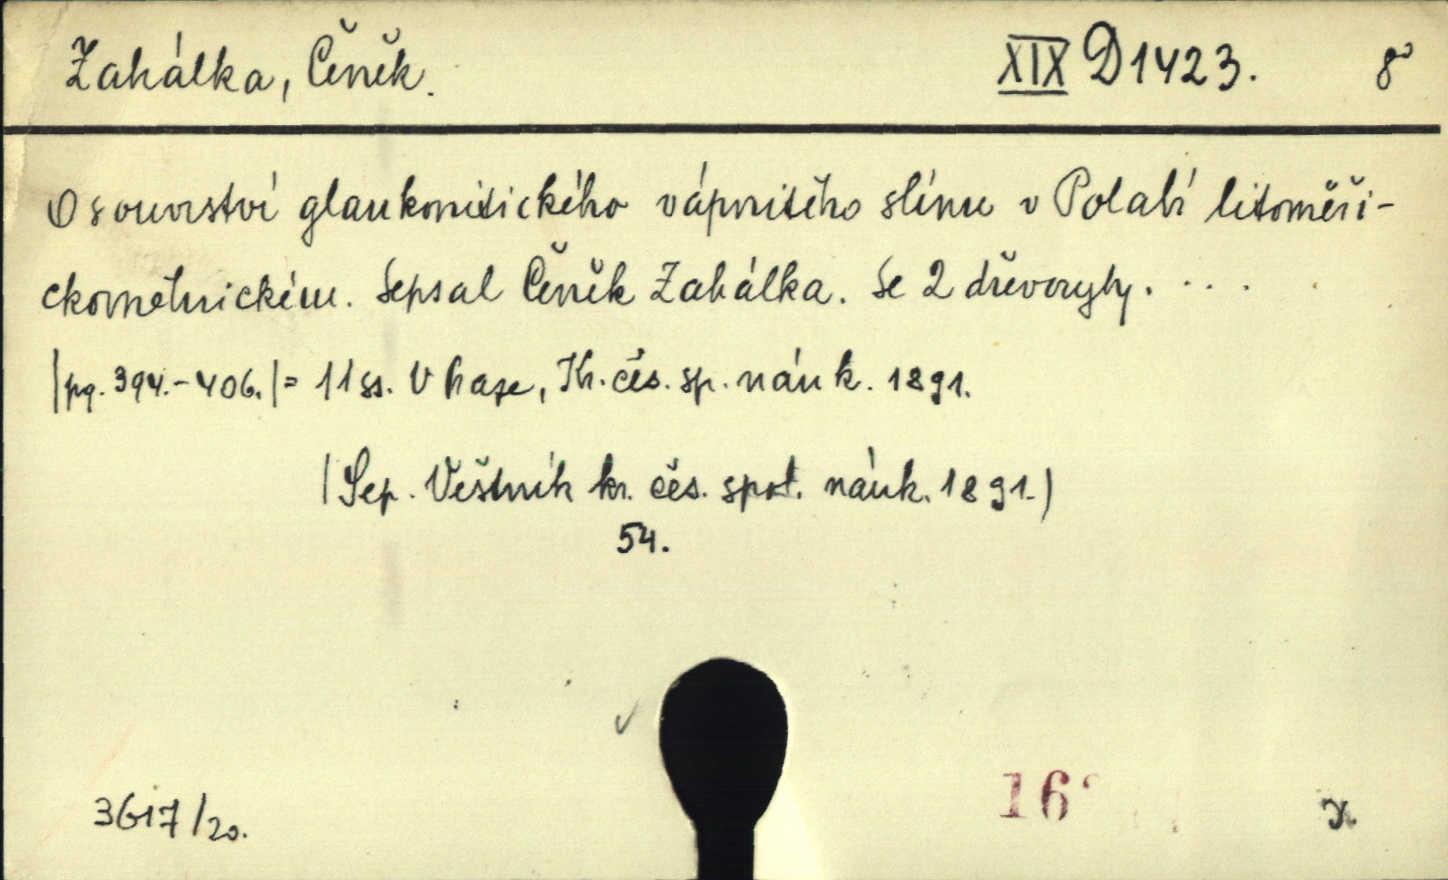 Zahálka, Čeněk. XIX D 1423. 8°
O souvrství glaukonitického vápnitého slínu v Polabí litoměři-
ckomělnickém. Sepsal Čeněk Zahálka. Se 2 dřevoryty. . . .
|pg. 394.-406.| = 11 ss. V Praze, Kr. čes. sp. náuk. 1891.
(Sep. Věstník kr. čes. spol. náuk. 1891.)
54.
3617/20.
16
x